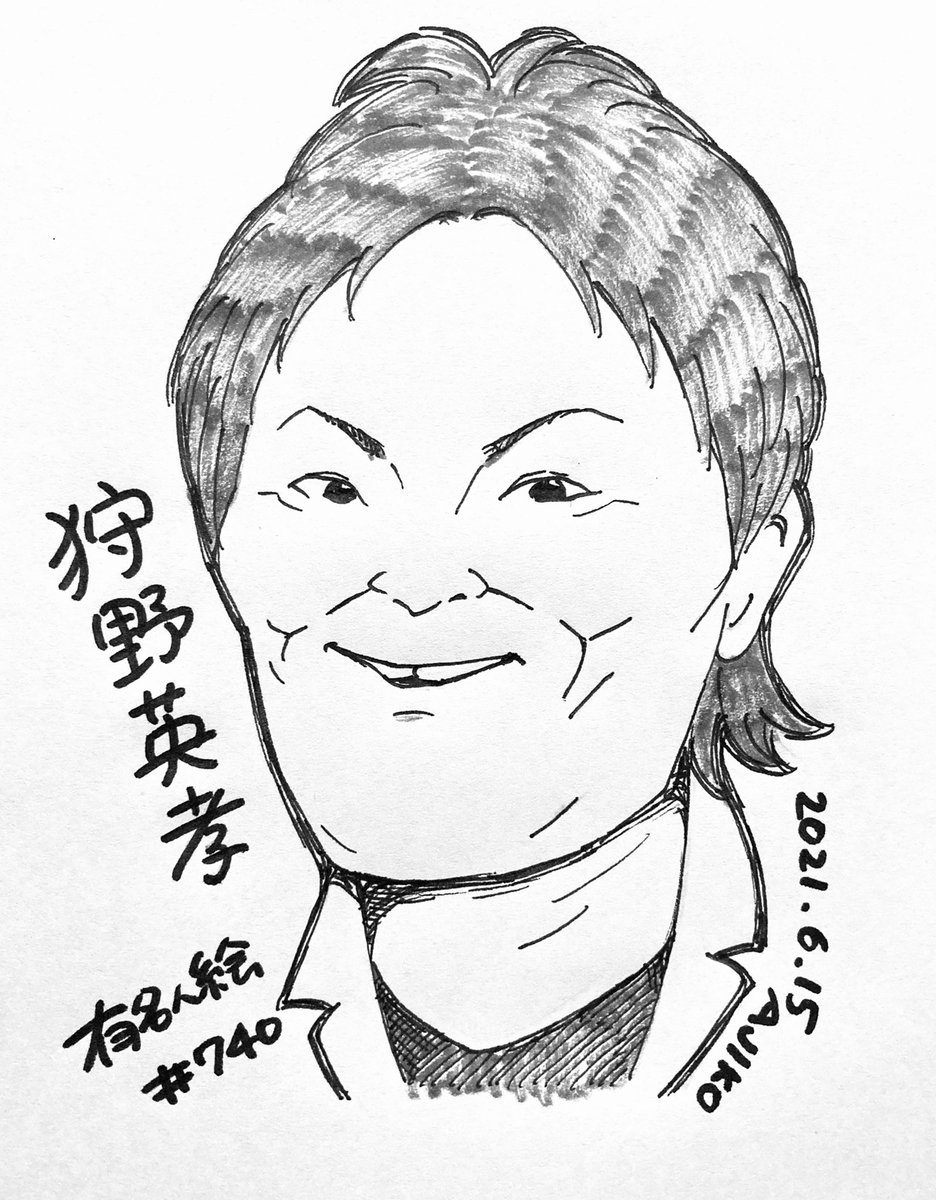 狩野英孝
有名人絵
#740
2021.6.15
AJIKO